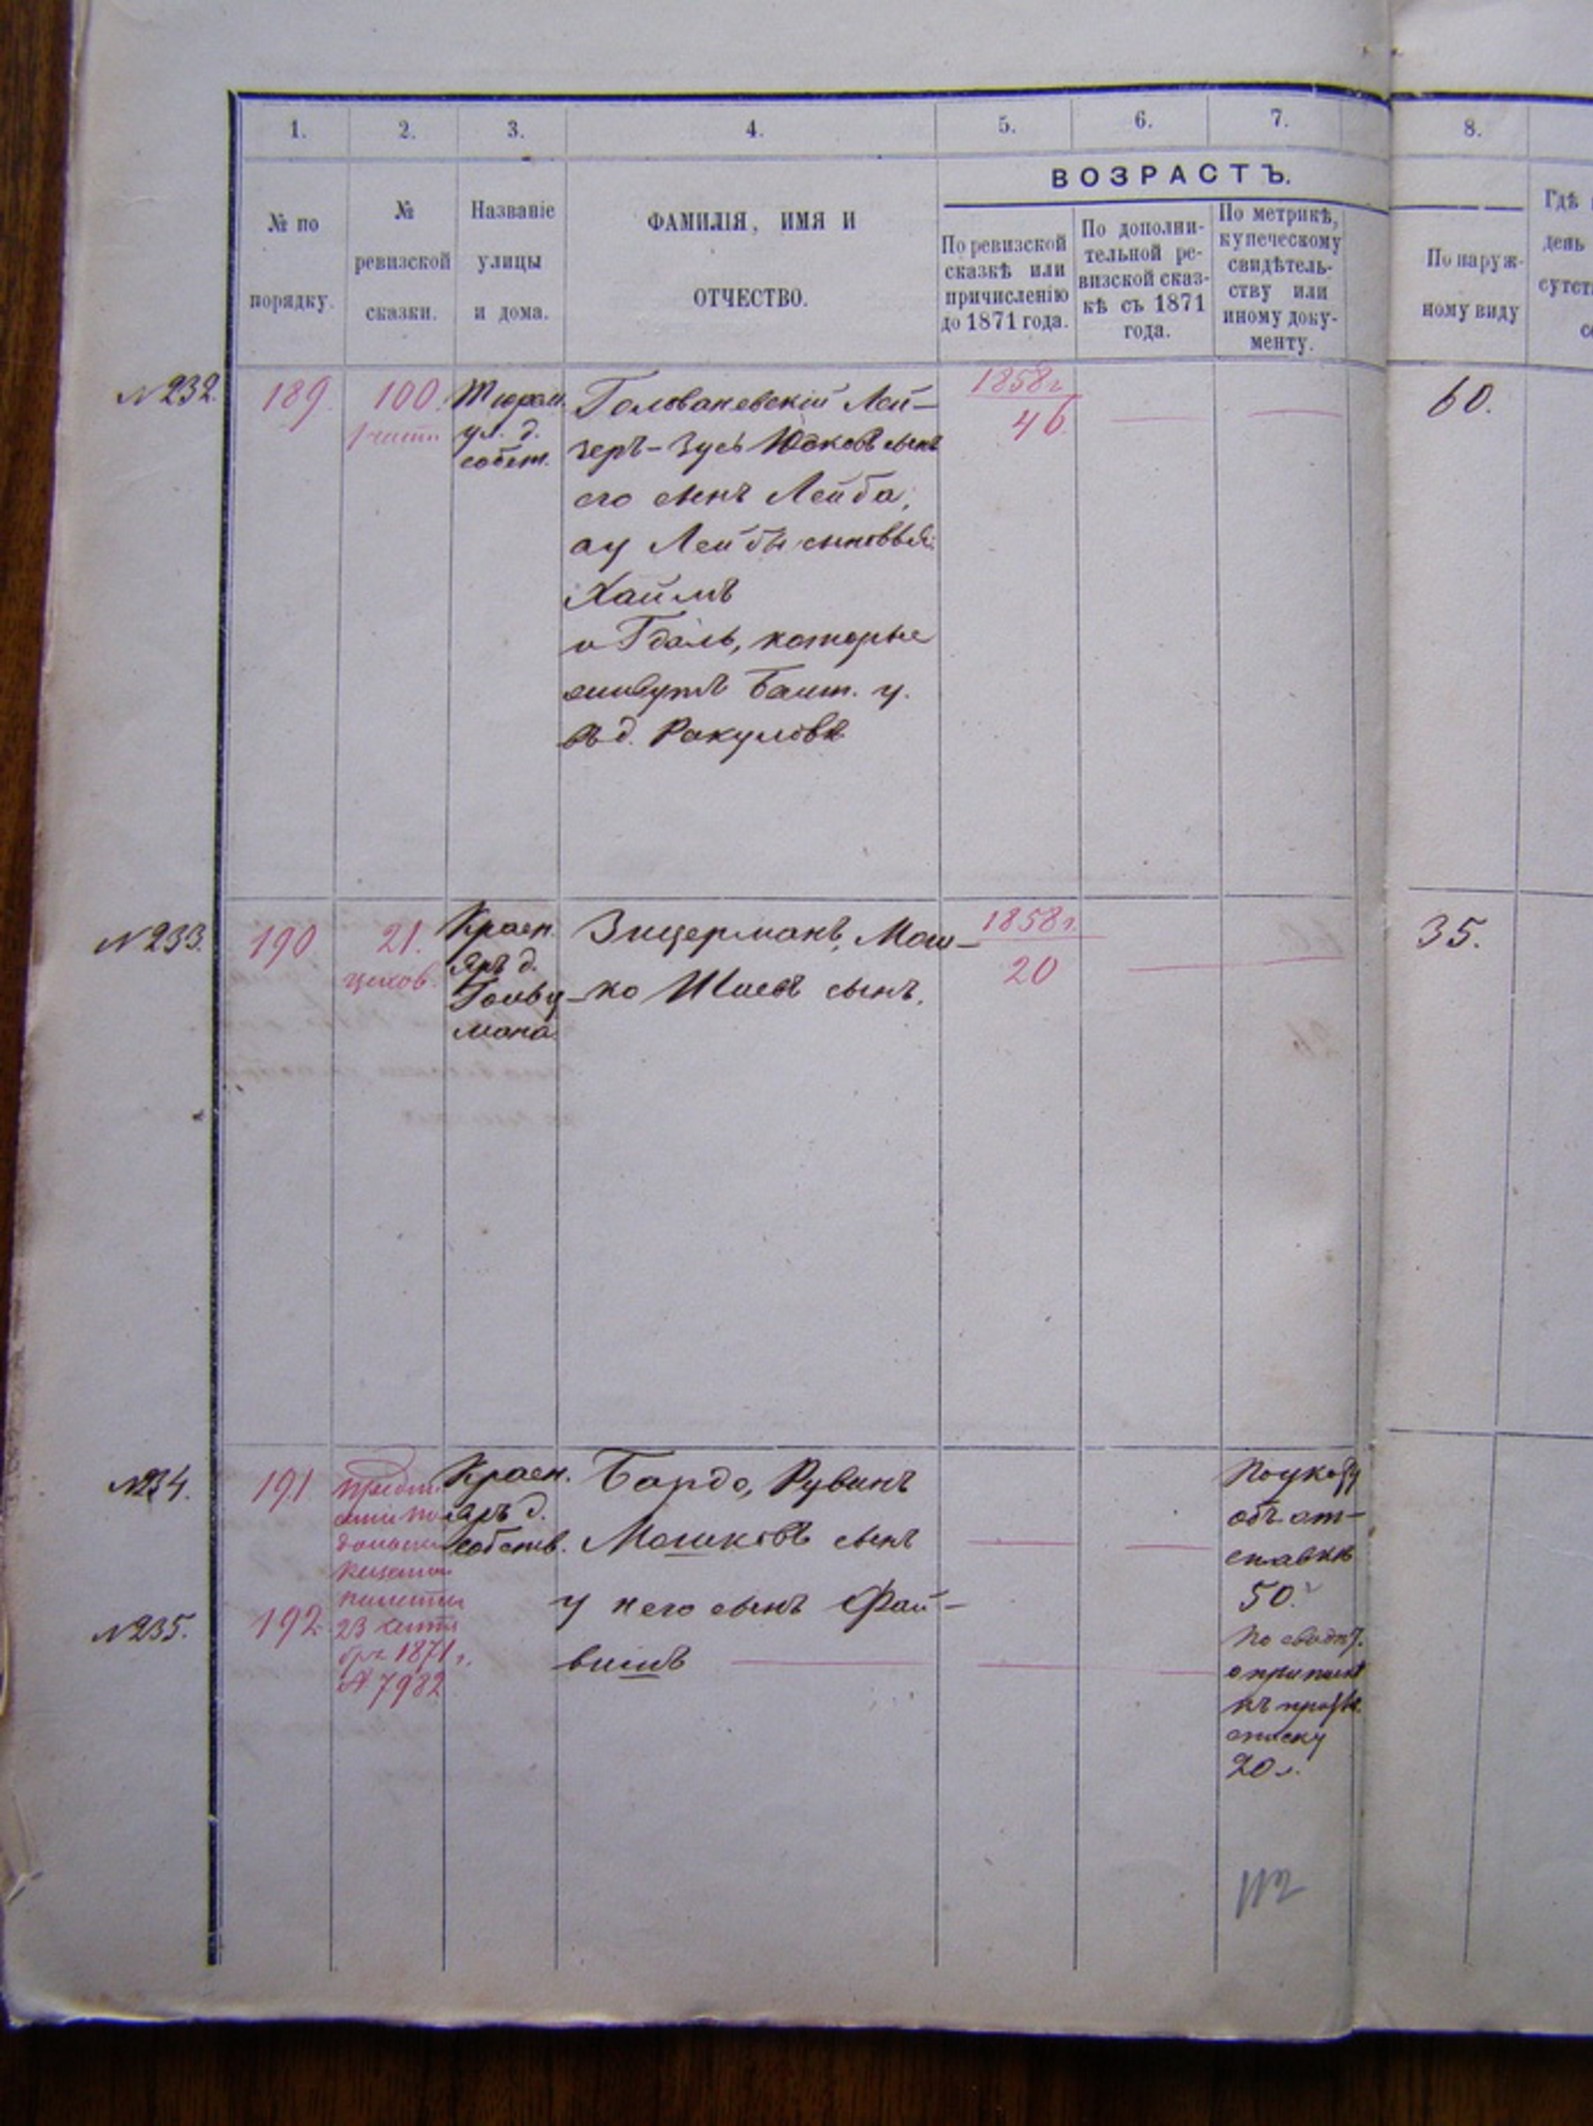 1. 2. 3. 4. 5. 6. 7. 8.
ВОЗРАСТЪ.
№ по
порядку.
№
ревизской
сказки.
Названіе
улицы
и дома.
ФАМИЛІЯ, ИМЯ И
ОТЧЕСТВО.
По ревизской
сказкѣ или
причисленію
до 1871 года.
По дополни-
тельной ре-
визской сказ-
кѣ съ 1871
года.
По метрикѣ,
купеческому
свидѣтель-
ству или
иному доку-
менту.
По наруж-
ному виду
Гдѣ
день
сутст
№ 232.
189
100.
ул. д.
собст.
Голованевскій Лей-
зеръ-Зусь Юдковъ сынъ
его сынъ Лейба,
а у Лейбы сыновья:
Хаимъ
и Гдаль, которые
живутъ Балт. у.
въ д. Ракуловѣ
1858 г.
46.
60.
№ 233.
190
21.
цехов.
Красн.
Яръ д.
мана.
Зицерманъ, Мош-
ко Шаевъ сынъ.
1858 г.
20
35.
№ 234.
191
23
1871 г.
№ 7982
Красн.
яръ д.
собств.
Бардо, Рувинъ
Мошковъ сынъ
По указу
объ от-
ставкѣ
50.
№ 235.
192.
у него сынъ Фай-
вишъ
о припискѣ
списку
20 л.
112